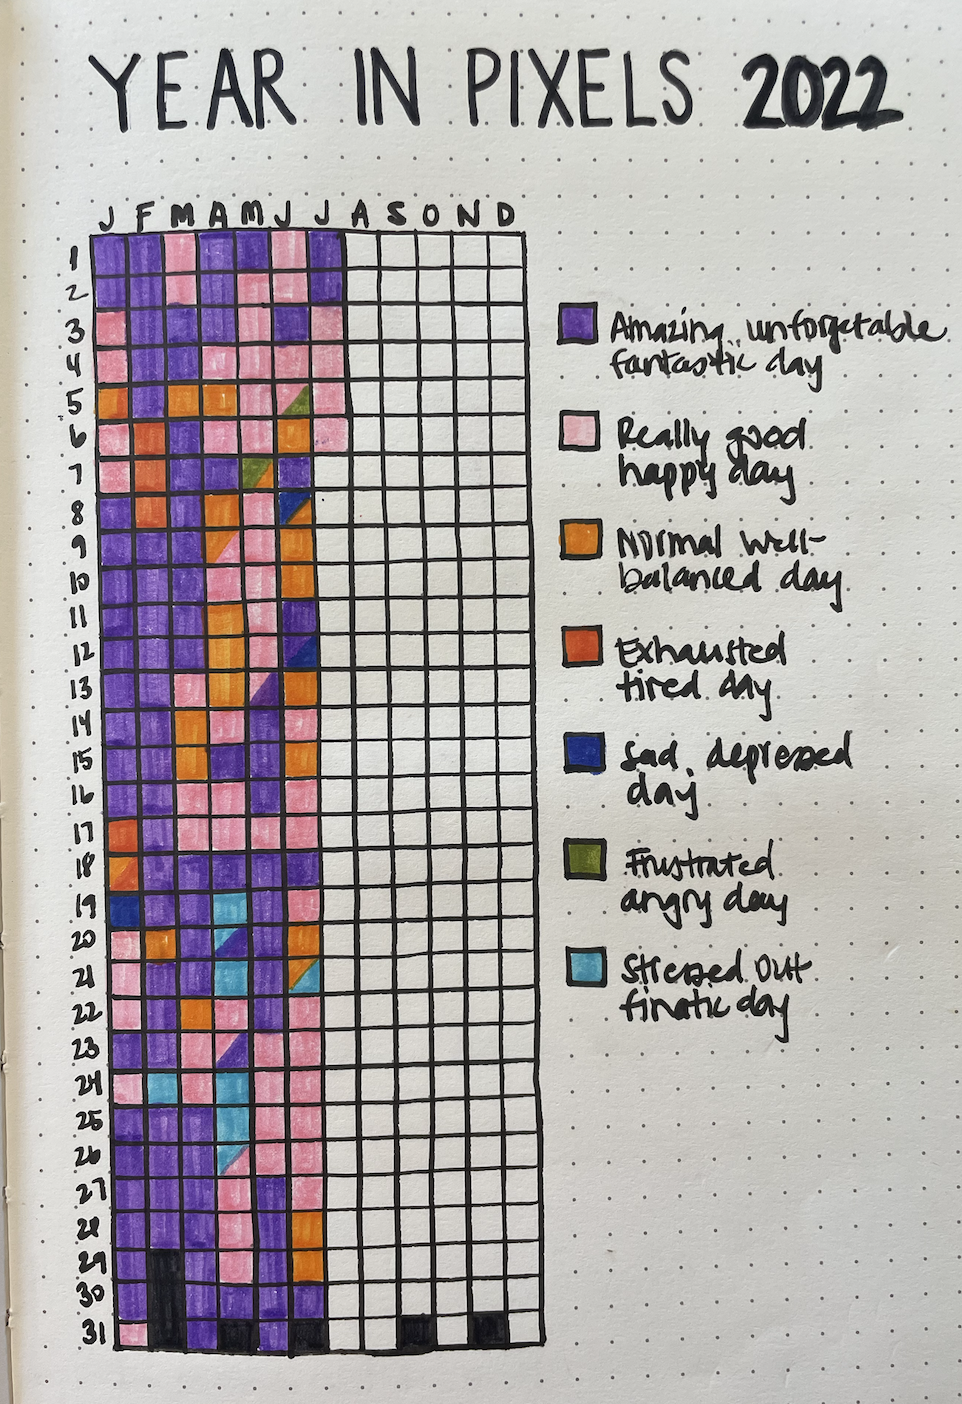 YEAR IN PIXELS 2022
J F M A M J J A S O N D
1
2
3
4
5
6
7
8
9
10
11
12
13
14
15
16
17
18
19
20
21
22
23
24
25
26
27
28
29
30
31
Amazing, unforgetable
fantastic day
Really good
happy day
Normal well-
balanced day
Exhausted
tired day
Sad, depressed
day
Frustrated
angry day
Stressed out
finatic day